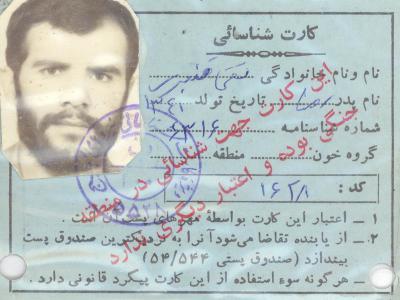 کارت شناسائی
نام ونام خانوادگی
نام پدر تاریخ تولد ۱۳۴۱
شماره شناسنامه ۱۶
گروه خون منطقه
کد : ۱۶۲/۱
این کارت جهت شناسائی در منطقه
جنگی بوده و اعتبار دیگری ندارد
۱ ـ اعتبار این کارت بواسطهٔ مهرهای پشت آن است .
۲ ـ از یابنده تقاضا می‌شود آنرا به نزدیکترین صندوق پست
بیندازد ( صندوق پستی ۵۴/۵۴۴ )
ـ هرگونه سوء استفاده از این کارت پیگرد قانونی دارد .